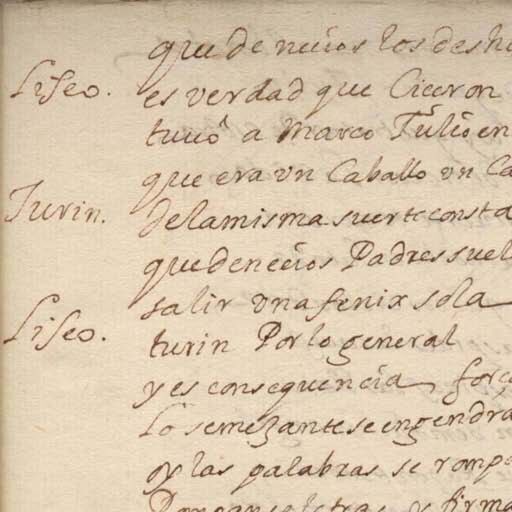 que de necios los deshe
Liseo. es verdad que Ciceron
tuuo a Marco Tulio en
que era vn Caballo vn Ca
Turin. de la misma suerte consta
que de necios Padres suel
salir vna fenix sola
Liseo. turin Por lo general
y es consequencia forç
lo semezante se engendra
oy las palabras se rompe
Pongan letras y firma